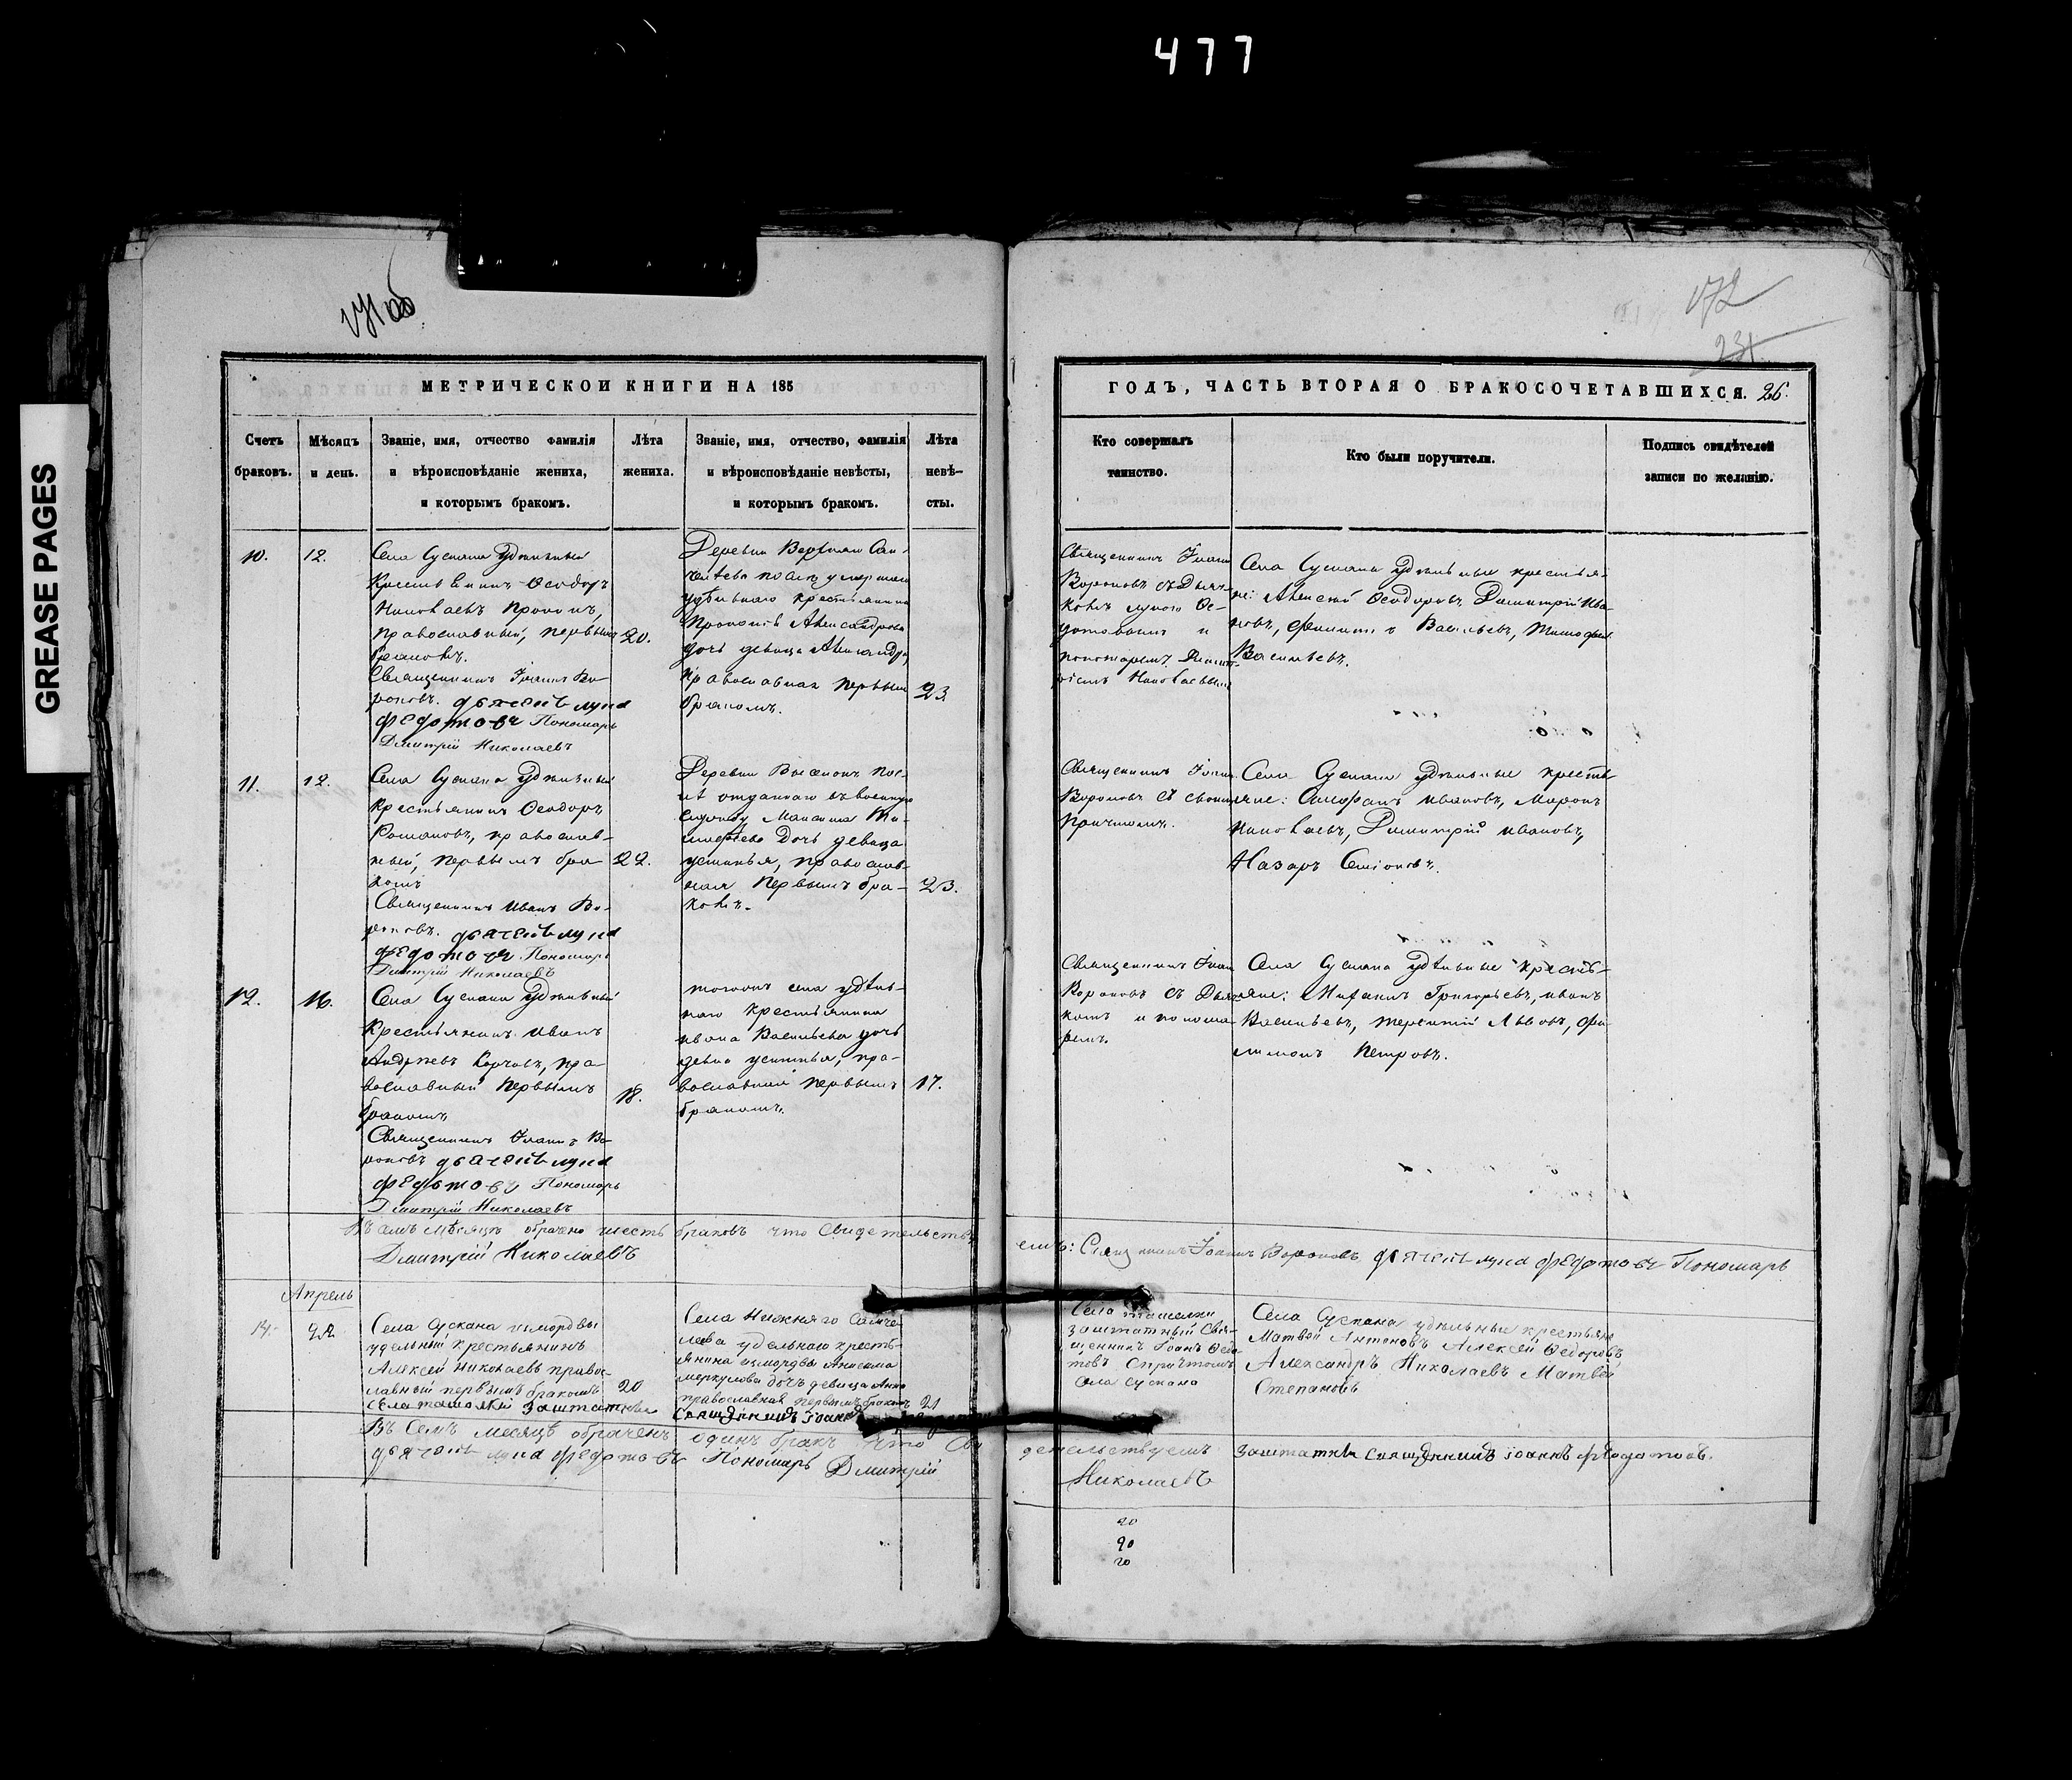 477
GREASE PAGES
171 об
172
231
МЕТРИЧЕСКОИ КНИГИ НА 185
ГОДЪ, ЧАСТЬ ВТОРАЯ О БРАКОСОЧЕТАВШИХСЯ. 26.
Счетъ
браковъ.
Мѣсяцъ
и день.
Званіе, имя, отчество фамилія
и вѣроисповѣданіе жениха,
и которымъ бракомъ.
Лѣта
жениха.
Званіе, имя, отчество, фамилія
и вѣроисповѣданіе невѣсты,
и которымъ бракомъ.
Лѣта
невѣ-
сты.
Кто совершалъ
таинство.
Кто были поручители.
Подпись свидѣтелей
записи по желанію.
10.
12.
Села Сускана Удѣльный
Крестьянинъ Ѳеодоръ
Николаевъ
православный, первымъ
бракомъ.
Священникъ Іоаннъ Во-
роновъ. дьячекъ лука
федотовъ Пономарь
Дмитрій Николаевъ
20.
Деревни
послѣ умершаго
удѣльнаго крестьянина
Александрова
дочь девица Александра,
православная первымъ
бракомъ.
23.
Священникъ Іоаннъ
Вороновъ съ Дьяч-
комъ лукою Ѳе-
дотовымъ и
пономаремъ Димит-
ріемъ Николаевымъ
Села Сускана Удѣльные крестья-
не: Алексѣй Ѳеодоровъ, Димитрій Ива-
новъ, Филиппъ Васильевъ, Тимофей
Васильевъ.
11.
12.
Села Сускана Удѣльный
Крестьянинъ Ѳеодоръ
Романовъ, православ-
ный, первымъ бра-
комъ
Священникъ Иванъ Во-
роновъ. дьячекъ лука
федотовъ Пономарь
Дмитрій Николаевъ
22.
Деревни Висловки пос-
лѣ отданнаго въ военную
службу Максима Ти-
мофѣева Дочь девица
устинья, православ-
ная первымъ бра-
комъ.
23.
Священникъ Іоаннъ
Вороновъ съ своимъ
причтомъ.
Села Сускана удѣльные кресть-
яне: Ивановъ, Миронъ
Николаевъ, Димитрій Ивановъ,
Назаръ Семіоновъ.
12.
16.
Села Сускана Удѣльный
Крестьянинъ Иванъ
Андреевъ пра-
вославный первымъ
бракомъ
Священникъ Іоаннъ Во-
роновъ дьячекъ лука
федотовъ Пономарь
Дмитрій Николаевъ
18.
тогожъ села удѣль-
наго крестьянина
Ивана Васильева дочь
девка устинья, пра-
вославная первымъ
бракомъ.
17.
Священникъ Іоаннъ
Вороновъ съ Дьяч-
комъ и понома-
ремъ.
Села Сускана удѣльные кресть-
яне: Григорьевъ, Иванъ
Васильевъ, Терентій Львовъ, Фи-
лимонъ Петровъ.
Въ семъ мѣсяцѣ обрачено шесть браковъ что Свидетельству
емъ: Священникъ Іоаннъ Вороновъ дьячекъ лука федотовъ Пономарь
Дмитрій Николаевъ
Апрель
14.
22.
Села Сускана измордвы
удельный крестьянинъ
Алексей Николаевъ право-
лавный первымъ бракомъ
20
села заштатный
Села Нижняго Санче-
леева удельнаго кресть-
янина измордвы Анисима
меркулова дочь девица Анна
православная первымъ бракомъ
21
священникъ Іоаннъ
Села
заштатный Свя-
щенникъ Іоанъ Ѳедо-
товъ Спричтомъ
села Сускана
Села Сускана удѣльные крестьяне
Матвѣй Антоновъ Алексѣй Ѳедоровъ
Александръ Николаевъ Матвѣй
Степановъ
Въ Семъ месяцѣ обраченъ одинъ бракъ что Сви
детельствуемъ заштатны священникъ Іоаннъ федотовъ.
дьячекъ лука федотовъ Пономарь Дмитрій
Николаевъ
20
90
20